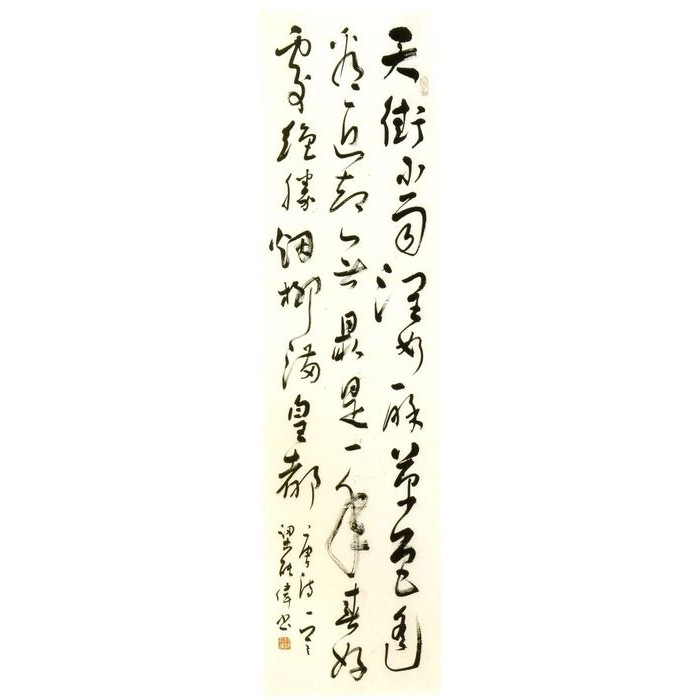 天街小雨潤如酥草色遙
看近却無最是一年春好
處絕勝烟柳滿皇都
唐詩一首
梁偉書